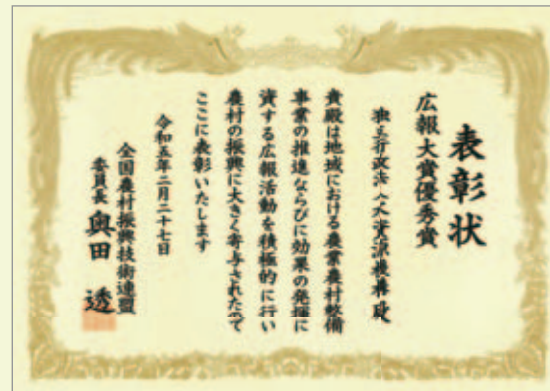 表彰状
広報大賞優秀賞
独立行政法人水資源機構 殿
貴殿は地域における農業農村整備
事業の推進ならびに効果の発揮に
資する広報活動を積極的に行い
農村の振興に大きく寄与されたので
ここに表彰いたします
令和五年二月二十七日
全国農村振興技術連盟
委員長 奥田 透